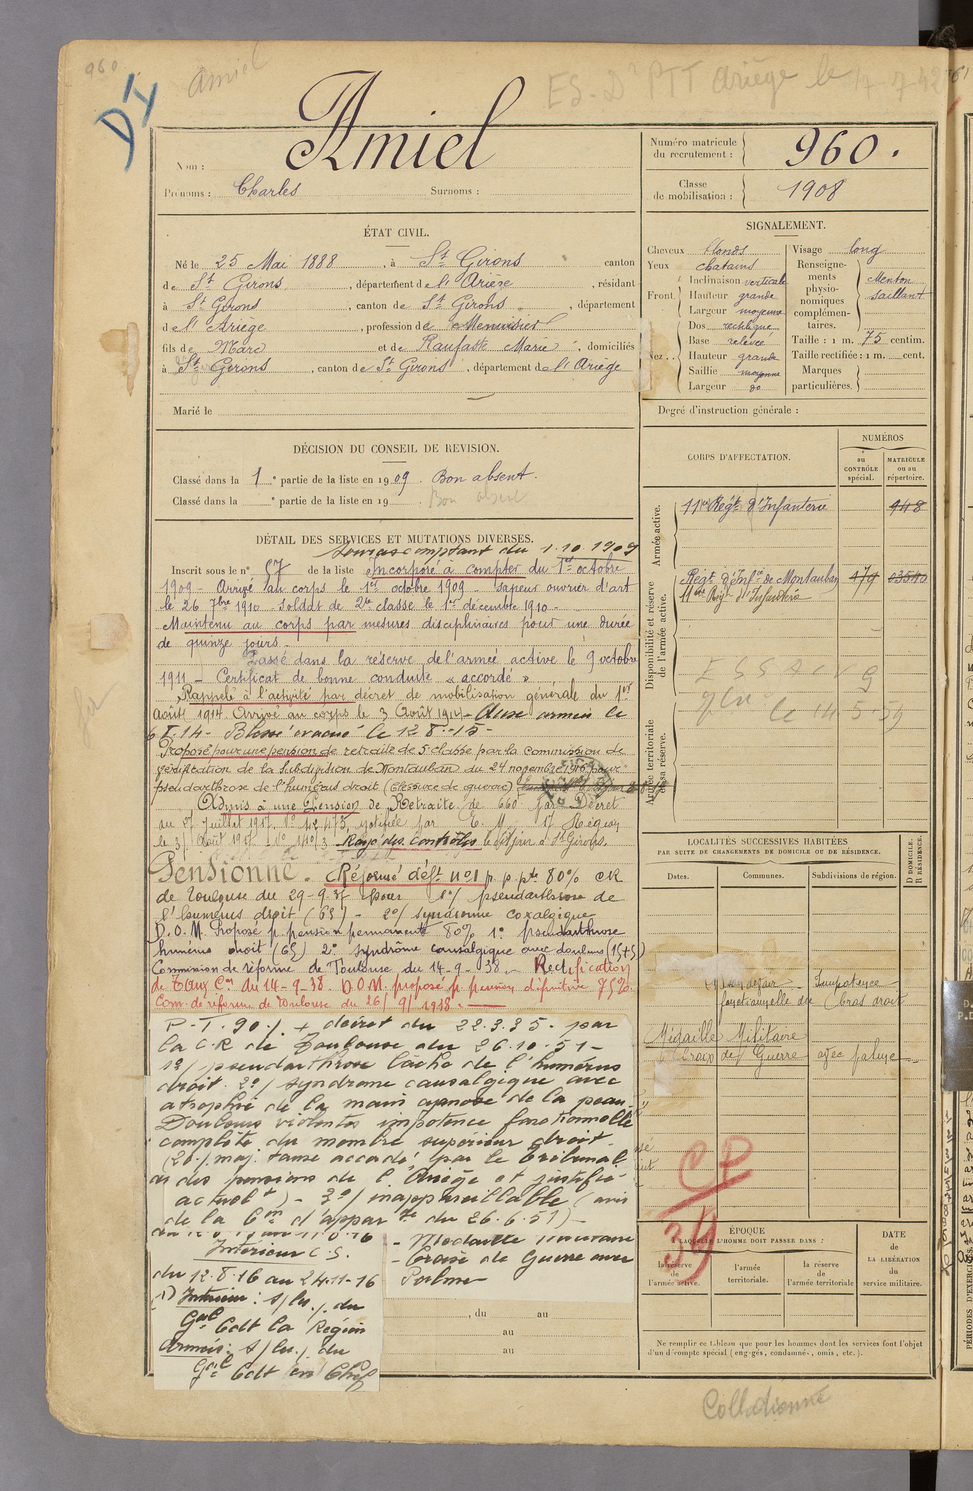 960
Amiel
ES-D PTT Ariège le 7-7-42
Amiel
Nom :
Prénoms : Charles Surnoms :
Numéro matricule du recrutement : 960.
Classe de mobilisation : 1908
ÉTAT CIVIL.
Né le 25 Mai 1888, à St Girons canton
de St Girons, département de l'Ariège, résidant
à St Girons, canton de St Girons, département
de l'Ariège, profession de Menuisier
fils de Marc et de Raufaste Marie, domiciliés
à St Girons, canton de St Girons, département de l'Ariège
Marié le
SIGNALEMENT.
Cheveux blonds
Yeux chatains
Front. Inclinaison verticale
Hauteur grande
Largeur moyenne
Nez. Dos rectiligne
Base relevée
Hauteur grande
Saillie moyenne
Largeur do
Visage long
Renseignements physionomiques complémentaires. Menton saillant
Taille : 1 m. 75 centim.
Taille rectifiée : 1 m. cent.
Marques particulières.
Degré d'instruction générale :
DÉCISION DU CONSEIL DE REVISION.
Classé dans la 1e partie de la liste en 1909. Bon absent.
Classé dans la e partie de la liste en 19 Bon absent
DÉTAIL DES SERVICES ET MUTATIONS DIVERSES.
comptant du 1.10.1909
Inscrit sous le n° 57 de la liste Incorporé à compter du 1er octobre
1909 - Arrivé au corps le 1er octobre 1909 - Sapeur ouvrier d'art
le 26 7bre 1910 - Soldat de 2de classe le 1er décembre 1910 -
Maintenu au corps par mesures disciplinaires pour une durée
de quinze jours -
Passé dans la réserve de l'armée active le 9 octobre
1911 - Certificat de bonne conduite « accordé »
Rappelé à l'activité par décret de mobilisation générale du 1er
Août 1914 Arrivé au corps le 3 Août 1914 - Aux armées le
6.8.14 - Blessé évacué le 12.8.15 -
Proposé pour une pension de retraite de 5e classe par la Commission de
vérification de la Subdivision de Montauban du 24 novembre 1916 pour
pseudarthrose de l'humérus droit (blessure de guerre)
Admis à une Pension de Retraite de 660 f par Décret
du Juillet 1917
Rayé des contrôles le dit jour à St Girons.
Pensionné. Réformé déft n°1 p. p. pte 80% CR
de Toulouse du 29-9-37 pour 1°/ pseudarthrose de
l'humérus droit (65) - 2°/ syndrome coxalgique
D.O.M. Proposé p. pension permanente 80% 1° pseudarthrose
humérus droit (65) 2° syndrôme causalgique avec douleurs (15+5)
Commission de réforme de Toulouse du 14-9-38 - Rectification
de Taux Con du 14-9-38. D.O.M. proposé p. pension définitive 75%.
Com. de réforme de Toulouse du 26/9/1938. -
P.T. 90% + décret du 22.3.35. par
la C.R de Toulouse du 26.10.51 -
1°/ pseudarthrose lâche de l'humérus
droit. 2°/ syndrome causalgique avec
atrophie de la main cyanose de la peau -
Douleurs violentes impotence fonctionnelle
complète du membre supérieur droit.
(20% maj. taux accordé par le tribunal
des pensions de l'Ariège et justifié
actuelt) - 3°/ inappareillable (avis
de la Con d'appar ge du 26.6.51) -
Intérieur C.S.
du 12.8.16 au 24-11-16
(1) Intérieur : s/ les /. du
Gal Cdt la Région
Armées : s/ les /. du
Gal Cdt en Chef
- Médaille militaire
- Croix de Guerre avec
Palme
, du au
au
au
CORPS D'AFFECTATION.
NUMÉROS
au CONTRÔLE spécial.
MATRICULE ou au répertoire.
Armée active.
11e Régt d'Infanterie 948
Disponibilité et réserve de l'armée active.
Régt d'Infie de Montauban 479 03540
11ème Régt d'Infanterie
Armée territoriale et sa réserve.
le 14-5-59
LOCALITÉS SUCCESSIVES HABITÉES
PAR SUITE DE CHANGEMENTS DE DOMICILE OU DE RÉSIDENCE.
Dates. Communes. Subdivisions de région. D DOMICILE. R RÉSIDENCE.
Impotence
fonctionnelle du bras droit
Médaille Militaire
Croix de Guerre avec palme
CP
39
ÉPOQUE
À LAQUELLE L'HOMME DOIT PASSER DANS :
la réserve de l'armée active.
l'armée territoriale.
la réserve de l'armée territoriale
DATE de LA LIBÉRATION du service militaire.
Ne remplir ce tableau que pour les hommes dont les services font l'objet
d'un décompte spécial (engagés, condamnés, omis, etc.).
Collationné